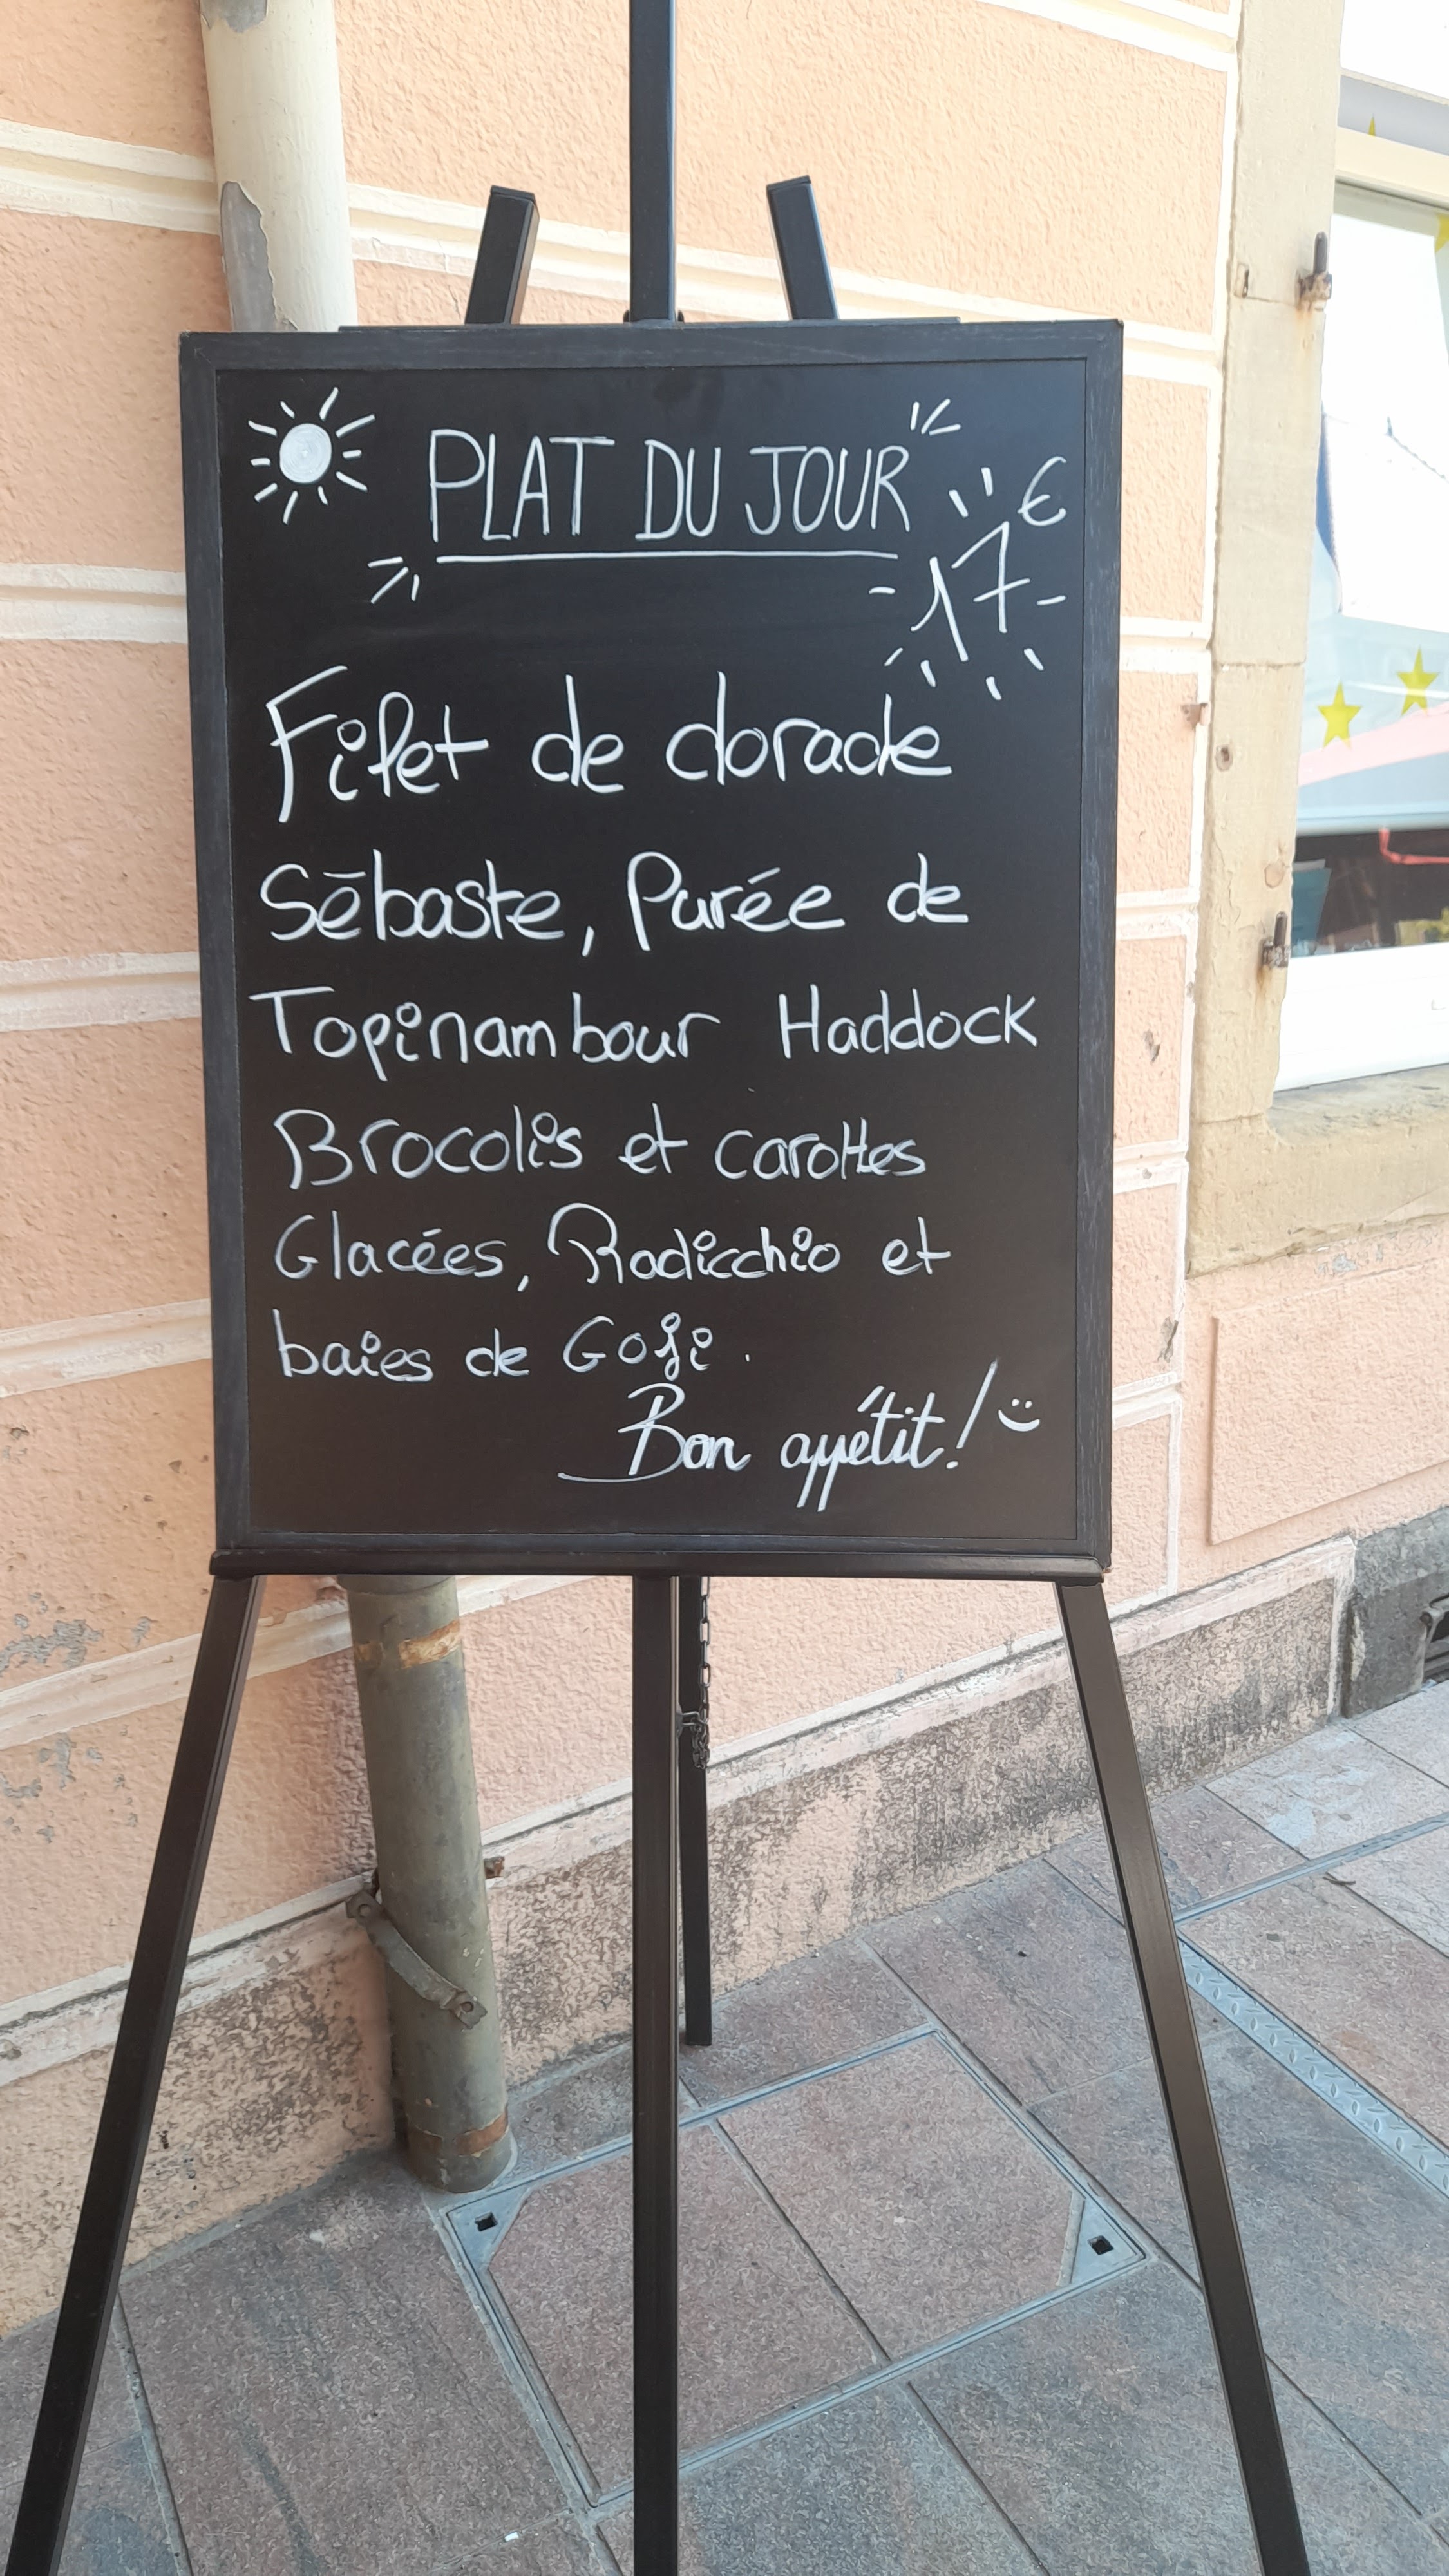 PLAT DU JOUR
17 €
Filet de dorade
Sébaste, Purée de
Topinambour Haddock
Brocolis et carottes
Glacées, Radicchio et
baies de Goji.
Bon appétit! :)